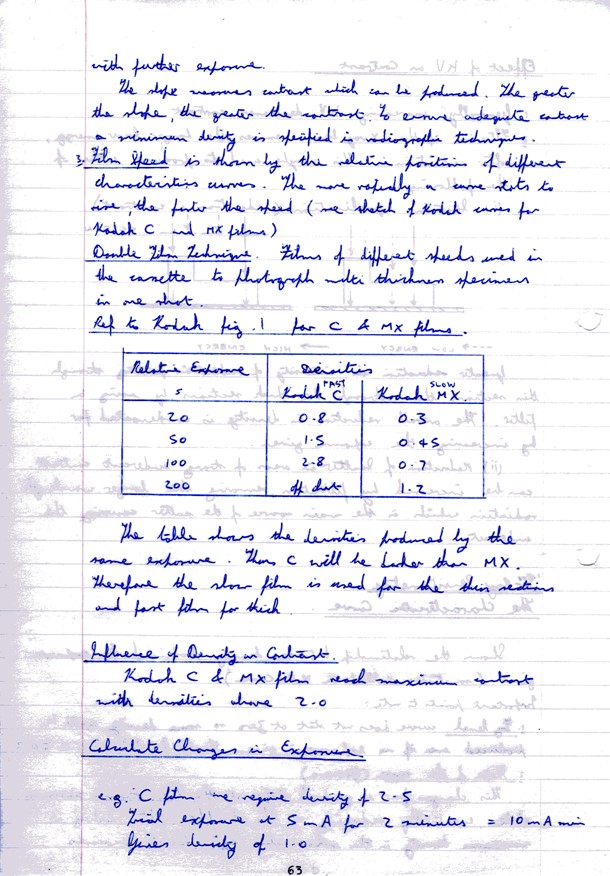 with further exposure.
The slope measures contrast which can be produced. The greater
the slope, the greater the contrast. To ensure adequate contrast
a minimum density is specified in radiographic techniques.
3. Film Speed is shown by the relative positions of different
characteristics curves. The more rapidly a curve starts to
rise, the faster the speed (see sketch of Kodak curves for
Kodak C and MX films)
Double Film Technique. Films of different speeds used in
the cassette to photograph multi thickness specimens
in one shot.
Ref to Kodak fig. 1 for C & MX films.
Relative Exposure Densities
s Kodak FAST C Kodak SLOW MX.
20 0.8 0.3
50 1.5 0.45
100 2.8 0.7
200 off chart 1.2
The table shows the densities produced by the
same exposure. Thus C will be darker than MX.
Therefore the slow film is used for the thin sections
and fast film for thick.
Influence of Density on Contrast.
Kodak C & MX film reach maximum contrast
with densities above 2.0
Calculate Changes in Exposure
e.g. C film we require density of 2.5
Trial exposure at 5 mA for 2 minutes = 10 mA min
Gives density of 1.0
63